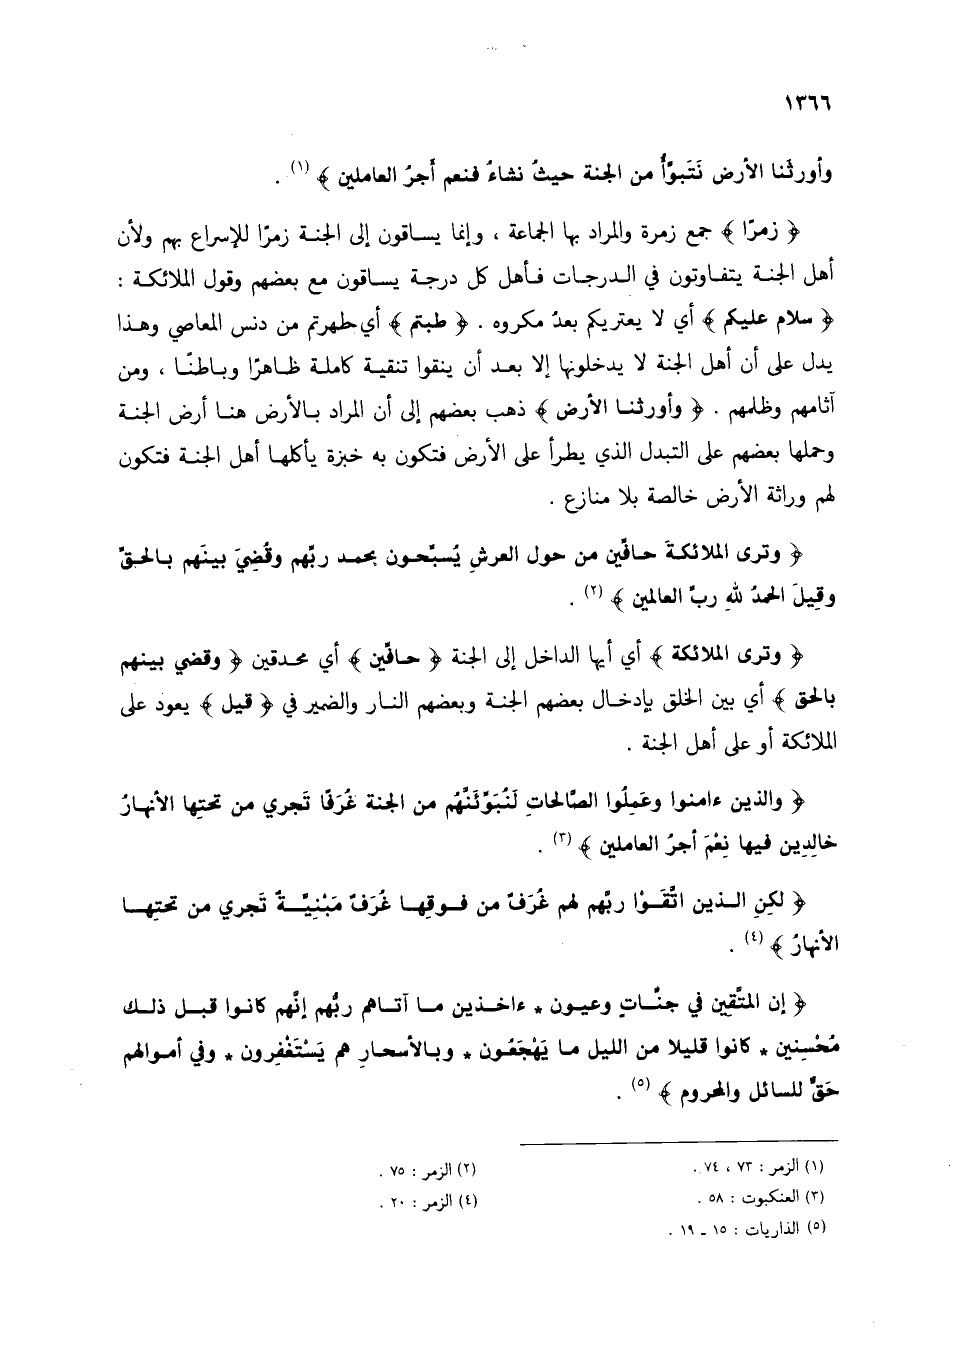 ١٣٦٦
وأورثَنا الأرض نَتَبوَّأُ من الجنة حيثُ نشاءُ فنعم أَجرُ العاملين ﴾ (١) .
﴿ زمرًا ﴾ جمع زمرة والمراد بها الجماعة ، وإنما يساقون إلى الجنة زمرًا للإسراع بهم ولأن
أهل الجنة يتفاوتون في الدرجات فأهل كل درجة يساقون مع بعضهم وقول الملائكة :
﴿ سلام عليكم ﴾ أي لا يعتريكم بعدُ مكروه . ﴿ طبتم ﴾ أي طهرتم من دنس المعاصي وهذا
يدل على أن أهل الجنة لا يدخلونها إلا بعد أن ينقوا تنقية كاملة ظاهرًا وباطنًا ، ومن
آثامهم وظلمهم . ﴿ وأورثنا الأرض ﴾ ذهب بعضهم إلى أن المراد بالأرض هنا أرض الجنة
وحملها بعضهم على التبدل الذي يطرأ على الأرض فتكون به خبزة يأكلها أهل الجنة فتكون
لهم وراثة الأرض خالصة بلا منازع .
﴿ وترى الملائكةَ حافِّين من حول العرشِ يُسبِّحون بحمد ربِّهم وقُضِيَ بينَهم بالحقِّ
وقِيلَ الحمدُ للهِ ربِّ العالمين ﴾ (٢) .
﴿ وترى الملائكة ﴾ أي أيها الداخل إلى الجنة ﴿ حافِّين ﴾ أي محدقين ﴿ وقضي بينهم
بالحق ﴾ أي بين الخلق بإدخال بعضهم الجنة وبعضهم النار والضمير في ﴿ قيل ﴾ يعود على
الملائكة أو على أهل الجنة .
﴿ والذين ءامنوا وعَمِلُوا الصَّالحاتِ لَنُبَوِّئَنَّهُم من الجنة غُرَفًا تَجري من تحتِها الأنهارُ
خالِدِين فيها نِعْمَ أجرُ العاملين ﴾ (٣) .
﴿ لكِنِ الذين اتَّقَوْا ربَّهم لهم غُرَفٌ من فوقِها غُرَفٌ مَبْنِيَّةٌ تَجري من تحتِها
الأنهارُ ﴾ (٤) .
﴿ إن المتَّقِين في جنَّاتٍ وعيون * ءاخذين ما آتاهم ربُّهم إنَّهم كانوا قبل ذلك
مُحْسِنين * كانوا قليلا من الليل ما يَهْجَعُون * وبالأسحارِ هم يَسْتَغْفِرون * وفي أموالهم
حَقٌّ للسائل والمحروم ﴾ (٥) .
(١) الزمر : ٧٣ ، ٧٤ . (٢) الزمر : ٧٥ .
(٣) العنكبوت : ٥٨ . (٤) الزمر : ٢٠ .
(٥) الذاريات : ١٥ ـ ١٩ .